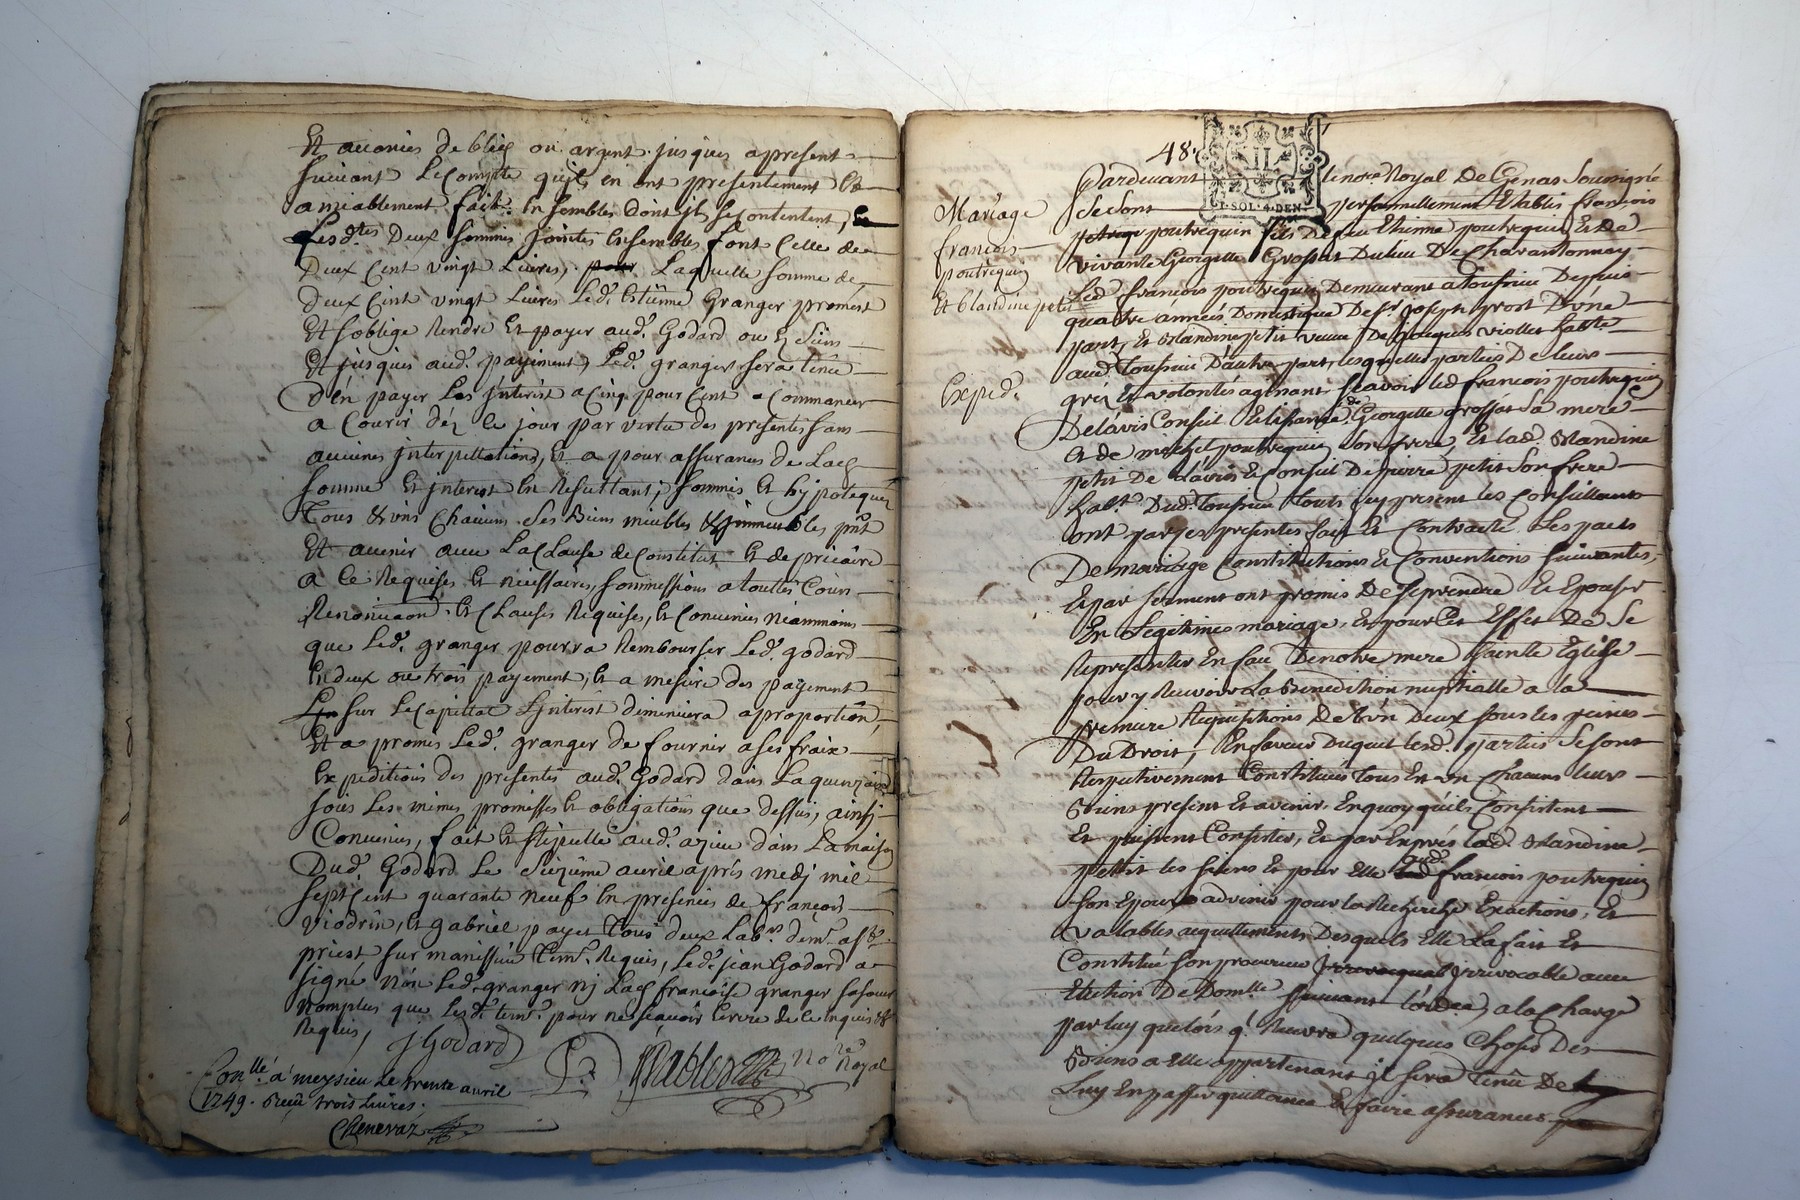 Et avances de bled ou argent jusques apresent
suivant Le Compte quils en ont presentement Et
amiablement fait Ensembles Dont jls secontentent,
Lesd.tes Deux sommes jointes Ensembles font Celle de
Deux Cent vingt Livres, Laquelle somme de
deux Cent vingt Livres Led. Estienne Granger promest
Et soblige Rendre Et payer aud. Godard ou Es siens
Et jusques aud. payement, Led. granger sera tenu
D'en payer Les jnterist a Cinq pour Cent a Commancer
a Courir déz ce jour par vertu des presentes sans
aucunes jnterpellations, Et a pour assurances de Lad.
somme Et jnterest En Resultant, sommis Et hypotequé
Tous & vns Chacuns ses Biens meubles & jmmeubles pnt
Et avenir avec La Clause de Constitut Et de precaire
a Ce Requises Et necessaires, sommissions a touttes Cours
Renonciaon Et Clauses Requises, Et Convenues neammoins
que Led. granger pourra Rembourser Led. godard
En deux ou trois payement, Et a mesure des payement
sur Le Capittal L'jnterist diminuera a proportion,
Et a promis Led. granger de fournir a ses fraix
Expeditions des presentes aud. Godard dans La quinzaine
sous Les mêmes promesses Et obligations que dessus, ainsi
Convenus, fait Et stipullé aud. azieu dans La maison
Dud. Godard Le seizième avril aprés medj mil
sept Cent quarante neuf En presences de françois
Viodrin, Et gabriel payet Tous deux Lab.rs dem.t a st
priest sur manissieu tem.s Requis, Led. jean Godard a
signé Non Led. granger nj Lad. françoise granger sa soeur
Nomplus que Lesd. tem.s pour ne sçavoir Ecrire de ce Enquis &
Requis,
J Godard
No.re Royal
Con.llé a meysieu Le trente avril
1749. Receu trois Livres.
Chenevaz
48.
II
1 SOL. 4 DEN.
Mariage
francois
poutrequin
Et blandine petit
Exped.
Pardevant Le no.re Royal De Genas soussigné
se sont personnellement Etablis francois
poutrequin fils De feu Etienne poutrequin Et De
vivante Georgette Grossat Du lieu De Chavantonnay
Led. francois poutrequin Demeurant a Toussieu Depuis
quatre années Domestique De s.r joseph grost D'vne
part, Et blandine petit veuve De jacques viollet habt.te
aud. Toussieu D'autre part, lesquelles parties De leurs
gréz Et volontés agissant sçavoir led. francois poutrequin
De L'avis Conseil Et licence de Georgette grossat sa mere
Et de michel poutrequin son frere, Et lad. blandine
petit De L'avis Et Conseil De pierre petit son frere
hab.t Dud. Toussieu touts jcy present les Conseillants
ont par ces presentes fait Et Contracté Les pacts
De mariage Constitutions Et Conventions suivantes,
Et par serment ont promis De se prendre Et Epouser
En Legitime mariage, Et pour Cet Effet De se
Representer En face De notre mere sainte Eglise
pour y Recevoir La Benediction nuptialle a la
premiere Requisitions De L'vn Deux sous les peines
Du Droit, En faveur Duquel lesd. parties se sont
Respectivement Constitués tous Et vn Chacuns leurs
Biens present Et avenir, En quoy qu'ils Consistent
Et puissent Consister, Et par Exprés lad. blandine
Petit les siens Et pour Elle aud. francois poutrequin
son Epoux advenir pour la Recherche Exactions, Et
valables acquittements Desquels Elle La fait Et
Constitué son procureur jrrevocable avec
Election De Dom.lle suivant l'ordre, a la Charge
par luy que lors q.l Recevra quelques Choses Des
Biens a Elle appartenant jl sera tenu De
Luy En passer quittance Et faire assurances